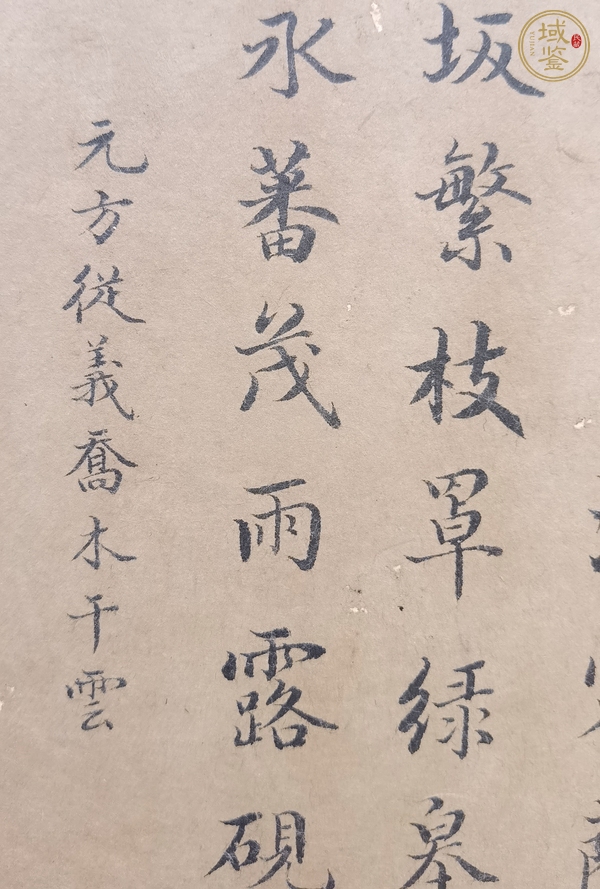 坂繁枝罩緑皋
永蕃茂雨露硯
元方從義喬木干雲
域鉴
YUJIAN